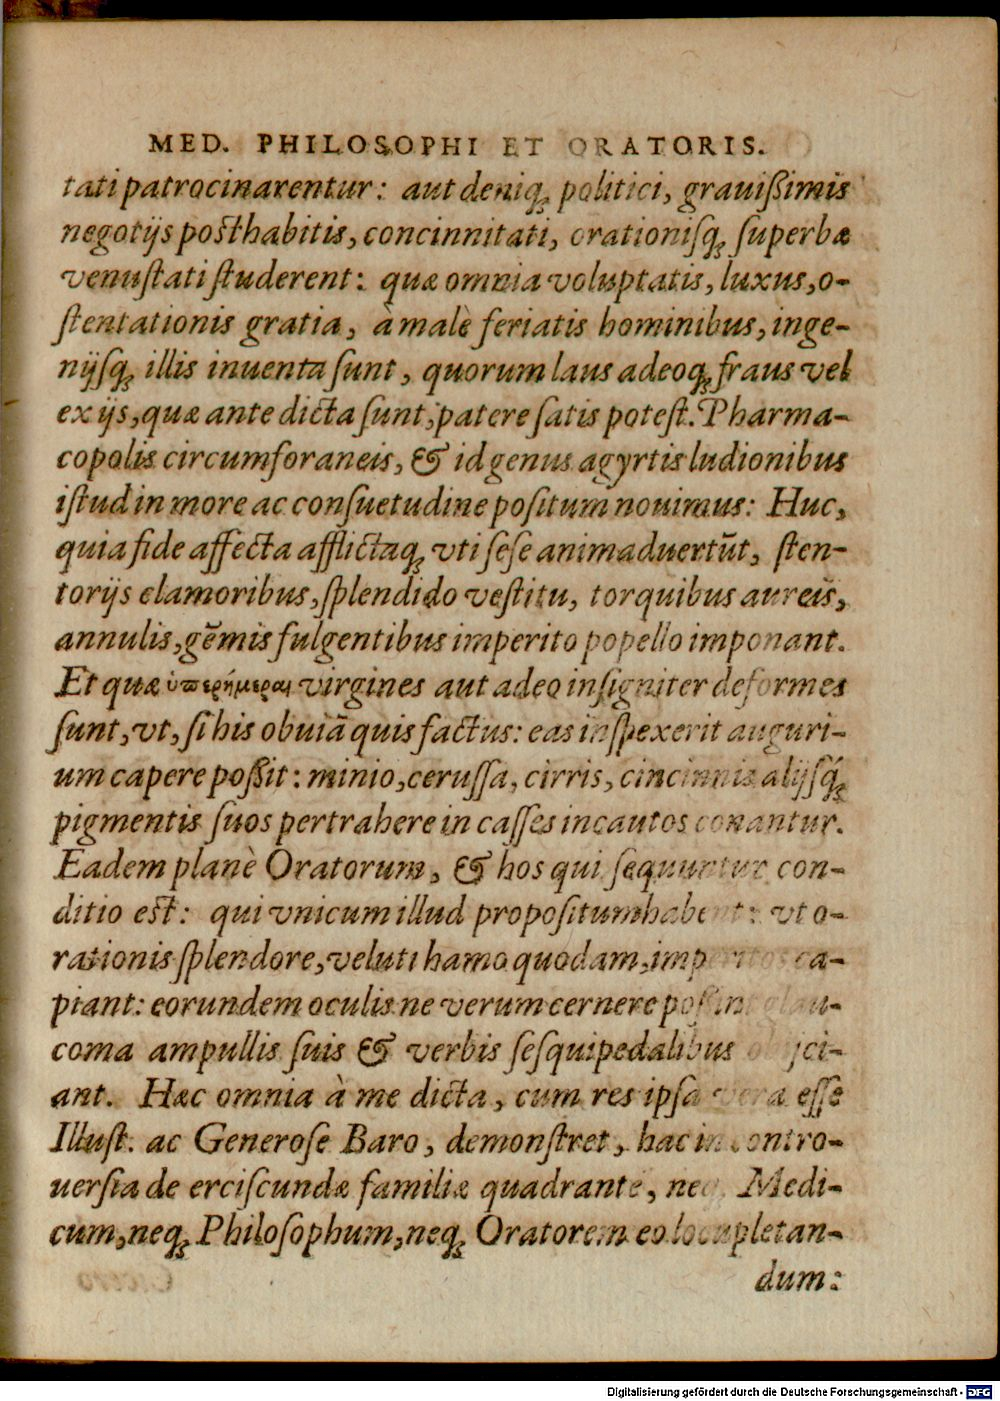 MED. PHILOSOPHI ET ORATORIS.
tati patrocinarentur: aut deniq; politici, grauißimis
negotijs posthabitis, concinnitati, orationisq; superbæ
venustati studerent: quæ omnia voluptatis, luxus, o-
stentationis gratia, à malè feriatis hominibus, inge-
nijsq; illis inuenta sunt, quorum laus adeoq; fraus vel
ex ijs, quæ ante dicta sunt, patere satis potest. Pharma-
copolis circumforaneis, & id genus agyrtis ludionibus
istud in more ac consuetudine positum nouimus: Huc,
quia fide affecta afflictaq; vti sese animaduertūt, sten-
torijs clamoribus, splendido vestitu, torquibus aureis,
annulis, gēmis fulgentibus imperito popello imponant.
Et quæ ὑπερήμεραι virgines aut adeo insigniter deformes
sunt, vt, si his obuiā quis factus: eas inspexerit auguri-
um capere poßit: minio, cerussa, cirris, cincinnis alijsq;
pigmentis suos pertrahere in casses incautos conantur.
Eadem planè Oratorum, & hos qui sequuntur con-
ditio est: qui vnicum illud propositum habent: vt o-
rationis splendore, veluti hamo quodam, imperitos ca-
piant: eorundem oculis ne verum cernere possint glau-
coma ampullis suis & verbis sesquipedalibus obijci-
ant. Hæc omnia à me dicta, cum res ipsa vera esse
Illust. ac Generose Baro, demonstret, hac in contro-
uersia de erciscundæ familiæ quadrante, neq; Medi-
cum, neq; Philosophum, neq; Oratorem eo locupletan-
dum:
Digitalisierung gefördert durch die Deutsche Forschungsgemeinschaft - DFG